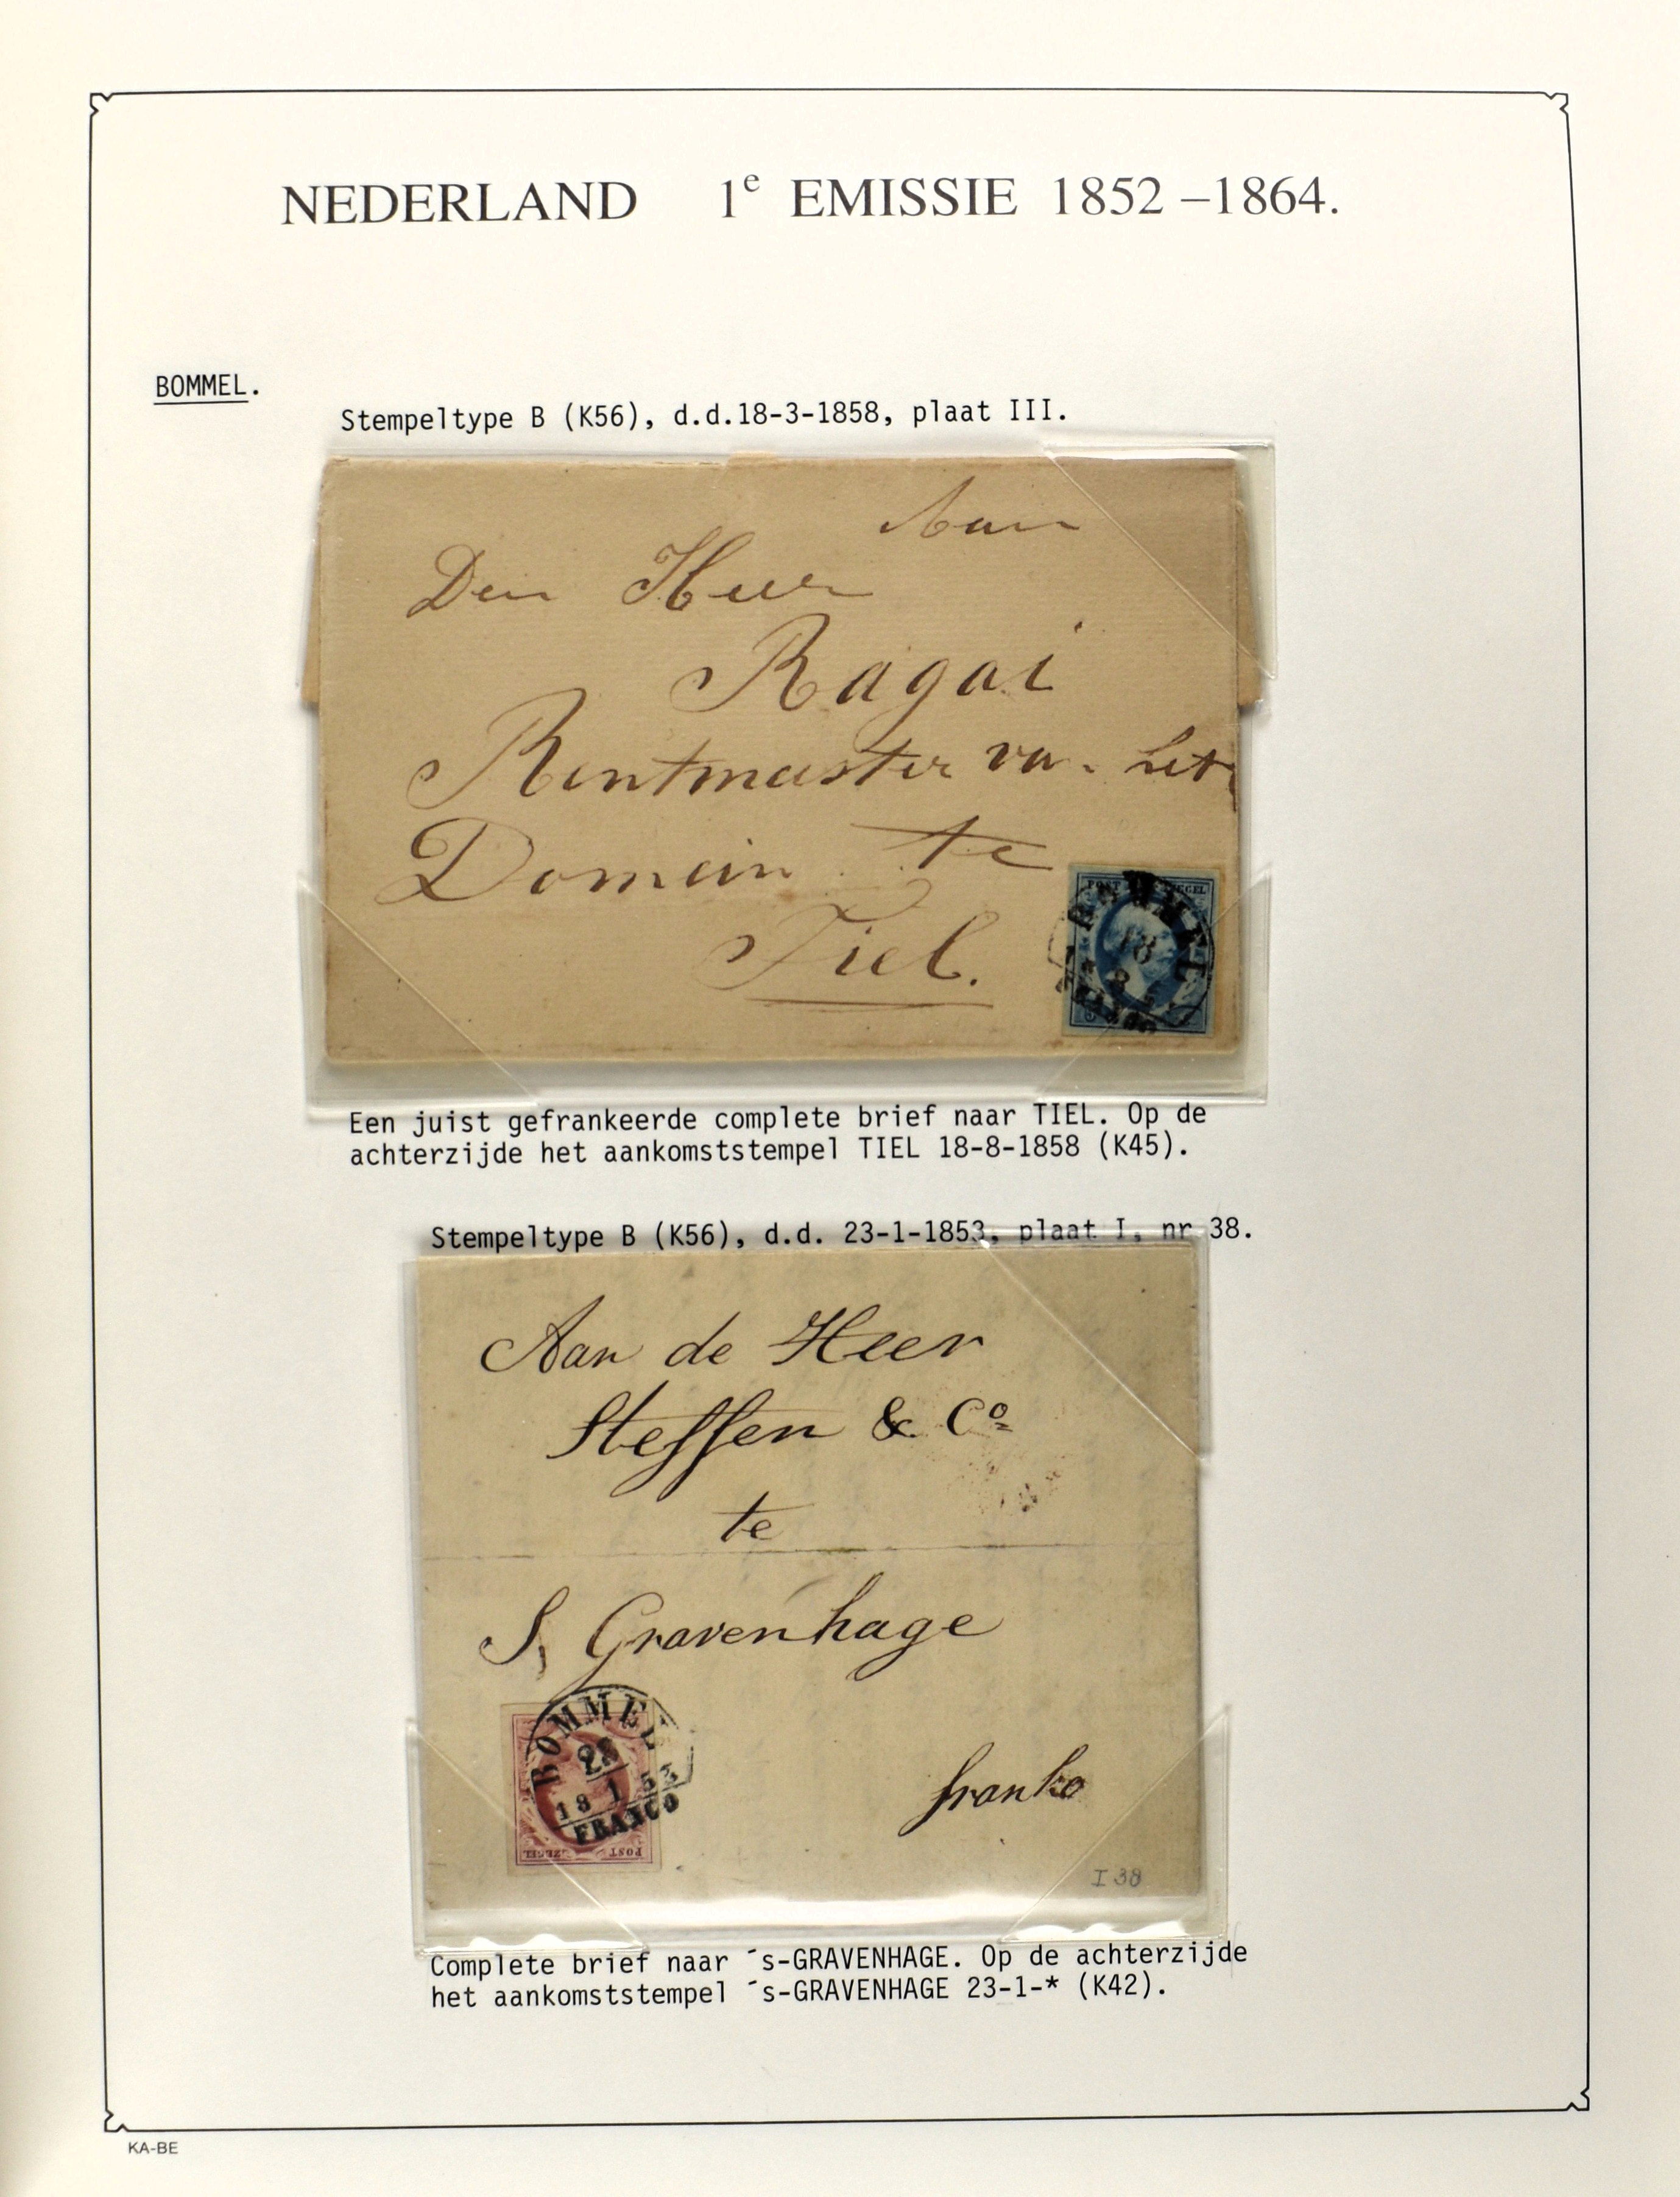 NEDERLAND 1e EMISSIE 1852 –1864.
BOMMEL.
Stempeltype B (K56), d.d.18-3-1858, plaat III.
Aan
Den Heer
Ragai
Rentmeester van het
Domein te
Tiel.
POST ZEGEL
BOMMEL
18
8
FRANCO
Een juist gefrankeerde complete brief naar TIEL. Op de
achterzijde het aankomststempel TIEL 18-8-1858 (K45).
Stempeltype B (K56), d.d. 23-1-1853, plaat I, nr 38.
Aan de Heer
Steffen & Co
te
S, Gravenhage
BOMMEL
23
18 1 53
FRANCO
POST ZEGEL
franko
I 38
Complete brief naar ´s-GRAVENHAGE. Op de achterzijde
het aankomststempel ´s-GRAVENHAGE 23-1-* (K42).
KA-BE